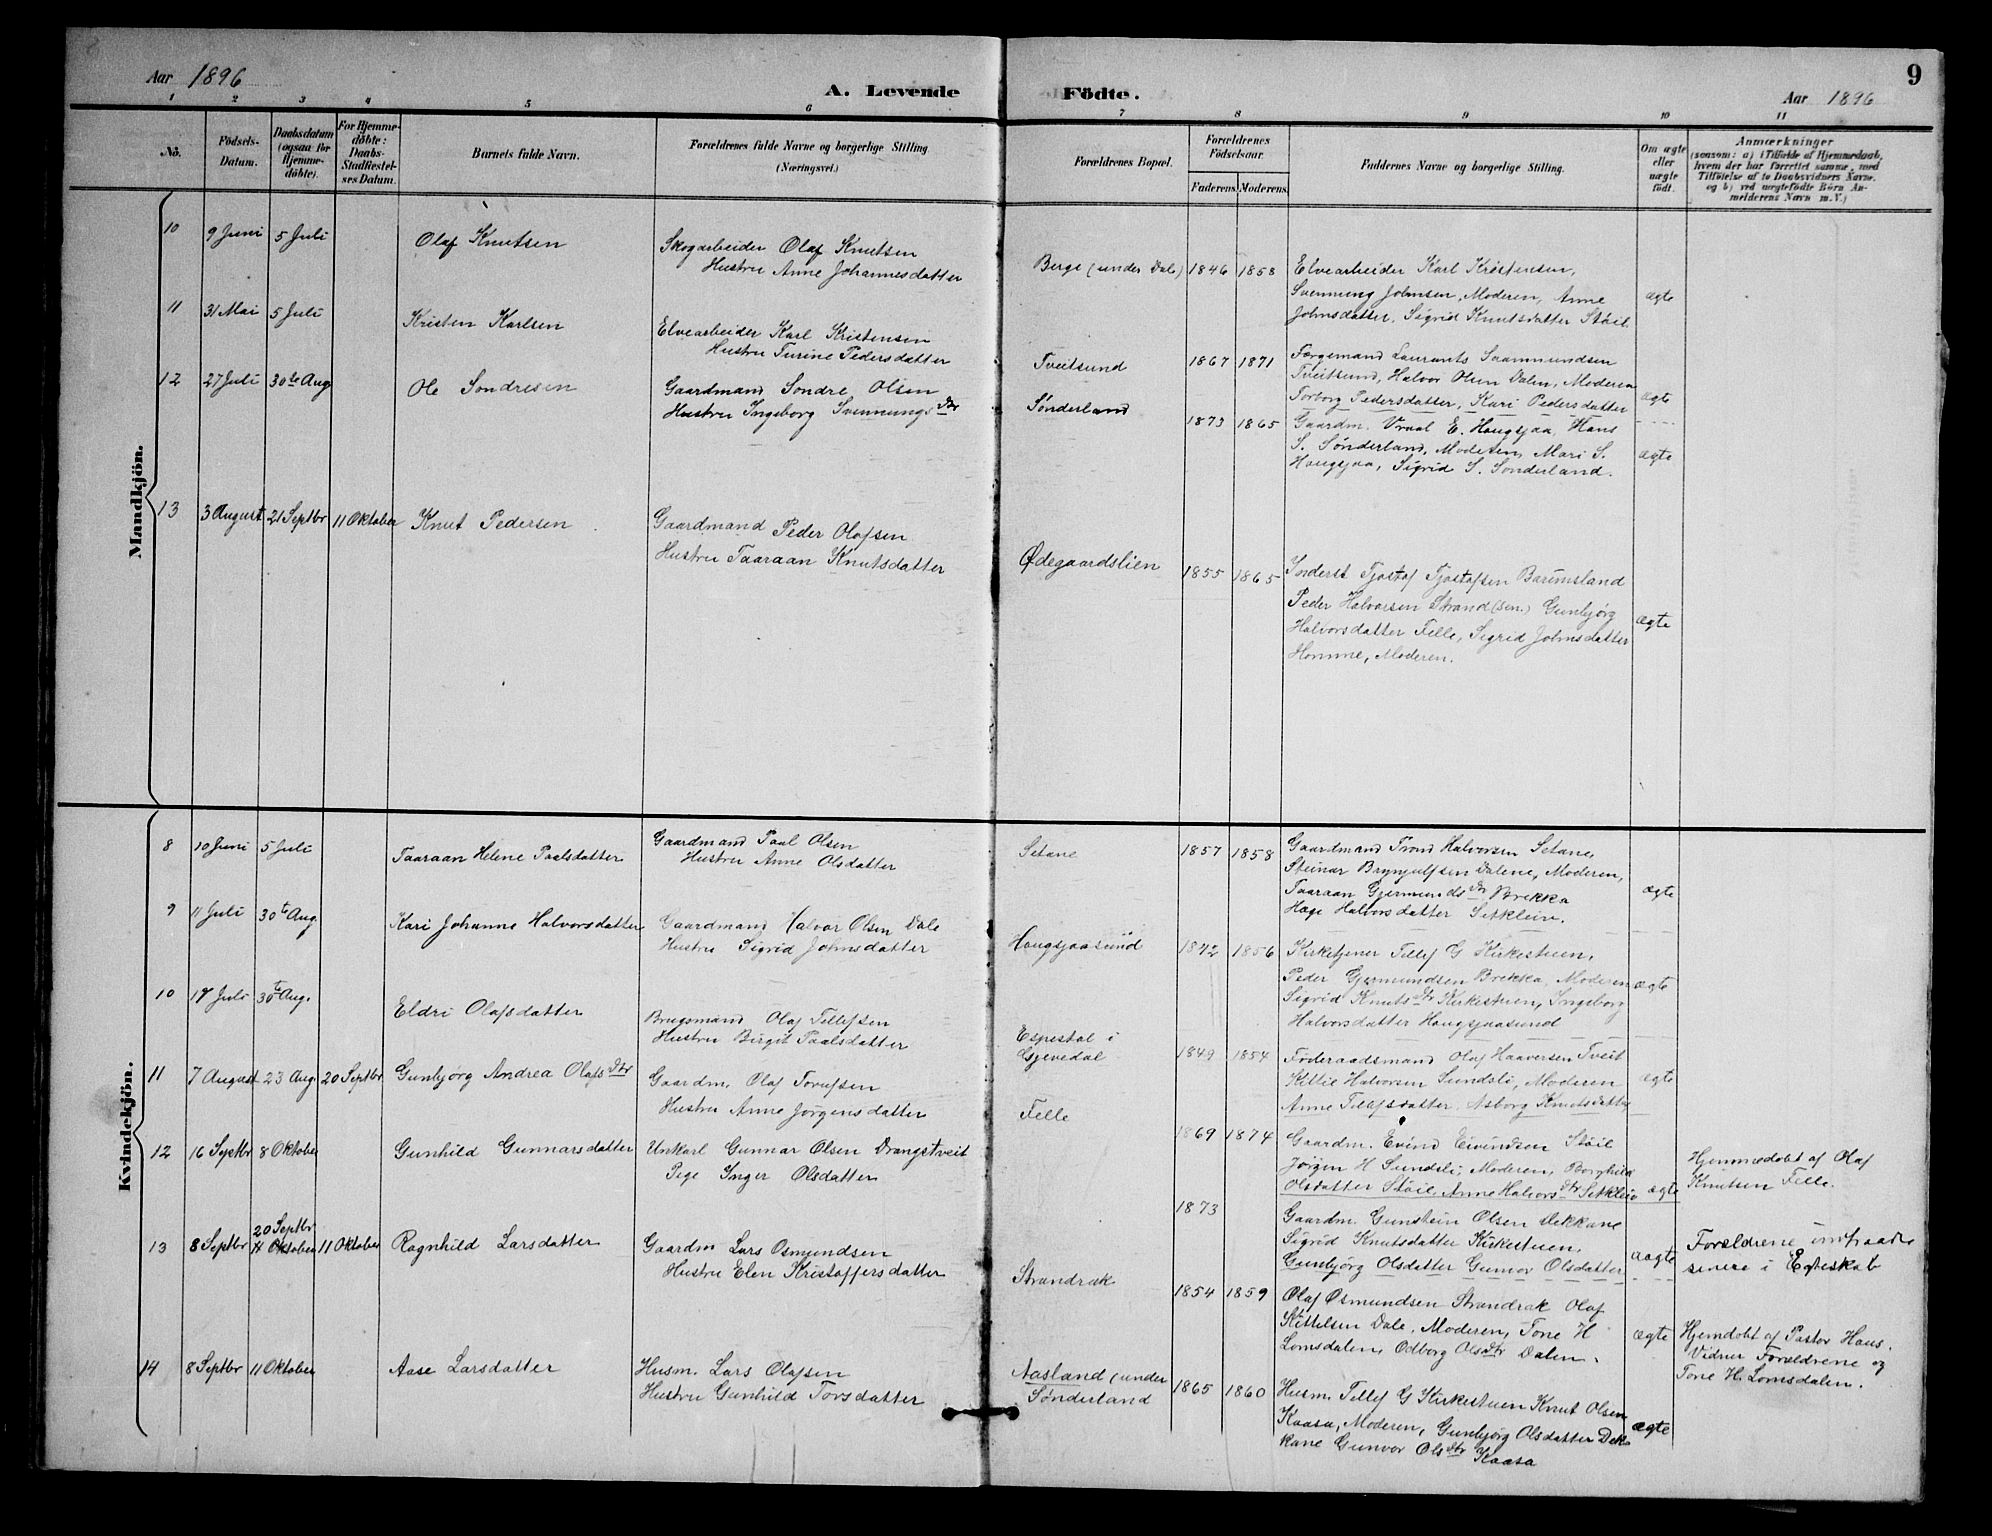 Aar 1896
A. Levende Födte.
9
Aar 1896
1 2 3 4 5 6 7 8 9 10 11
Nö.
Födsels-
Datum.
Daabsdatum
(ogsaa for
Hjemme-
döbte).
For Hjemme-
döbte:
Daabs-
Stadfæstel-
ses Datum.
Barnets fulde Navn.
Forældrenes fulde Navne og borgerlige Stilling
(Næringsvei.)
Forældrenes Bopæl.
Forældrenes
Födselsaar.
Faderens. Moderens.
Faddernes Navne og borgerlige Stilling.
Om ægte
eller
uægte
födt.
Anmærkninger
(saasom: a) i Tilfælde af Hjemmedaab,
hvem der har forrettet samme, med
Tilföielse af to Daabsvidners Navne.
og b) ved uægtefödte Börn An-
melderens Navn m. V.)
Mandkjön.
10 9 Juni 5 Juli Olaf Knutsen
Skogarbeider Olaf Knutsen
Hustru Anne Johannesdatter
Berge (under Dale) 1846 1858
Elvearbeider Karl Kristensen,
Svennung Johnsen, Moderen, Anne
Johnsdatter, Sigrid Knutsdatter Stöil.
ægte
11 31 Mai 5 Juli Kristen Karlsen
Elvearbeider Karl Kristensen
Hustru Turine Pedersdatter
Tveitsund 1867 1871
Færgemand Laurants Saamundsen
Tveitsund, Halvor Olsen Dalen, Moderen
Torborg Pedersdatter, Kari Pedersdatter
ægte
12 27 Juli 30te Aug Ole Sondresen
Gaardmand Sondre Olsen
Hustru Ingeborg Svennungsdtr
Sønderland 1873 1865
Gaardm. Vraal E. Hougsjaa, Hans
S. Sønderland, Moderen, Mari S.
Hougsjaa, Sigrid S. Sønderland.
ægte
13 3 August 21 Septbr 11 Oktober Knut Pedersen
Gaardmand Peder Olafsen
Hustru Taaraan Knutsdatter
Ødegaardslien 1855 1865
Inderst Tjostof Tjostofsen Barumsland
Peder Halvorsen Strand (sen.) Gunbjørg
Halvorsdatter Felle, Sigrid Johnsdatter
Homme, Moderen.
ægte
Kvindekjön.
8 10 Juni 5 Juli Taaraan Helene Paalsdatter
Gaardmand Paal Olsen
Hustru Anne Olsdatter
Setane 1857 1858
Gaardmand Trond Halvorsen Setane,
Steinar Brynjulfsen Dalene, Moderen,
Taaraan Gjermundsdtr Brekka
Hæge Halvorsdatter Setkleiv.
ægte
9 11 Juli 30te Aug. Kari Johanne Halvorsdatter
Gaardmand Halvor Olsen Dale
Hustru Sigrid Johnsdatter
Hougsjaasund 1842 1856
Kirketjener Tellef G Kirkestuen,
Peder Gjermundsen Brekka, Moderen
Sigrid Knutsdtr Kirkestuen, Ingeborg
Halvorsdatter Hougsjaasund
ægte
10 17 Juli 30te Aug. Eldri Olafsdatter
Brugsmand Olaf Tellefsen
Hustru Birgit Paalsdatter
Espestøl i
Gjevedal
1849 1854
Føderaadsmand Olaf Haaversen Tveit
Kittil Halvorsen Sundsli, Moderen
Anne Tellefsdatter, Asborg Knutsdatter
ægte
11 7 August 23 Aug. 20 Septbr Gunbjørg Andrea Olafsdtr
Gaardm. Olaf Torufsen
Hustru Anne Jørgensdatter
Felle
1869 1874
Gaardm. Evind Eivindsen Stöil
Jørgen H Sundsli, Moderen, Borghild
Olsdatter Stöil, Anne Halvorsdtr Setkleiv
ægte
Hjemmedøbt af Olaf
Knutsen Felle.
12 16 Septbr 8 Oktober Gunhild Gunnarsdatter
Unkarl Gunnar Olsen Drangstveit
Pige Inger Olsdatter
1873
Gaardm. Gunstein Olsen Dekkane
Sigrid Knutsdatter Kirkestuen,
Gunbjörg Olsdatter Gunvor Olsdatter
Forældrene indtraadte
senere i Egteskab
13 8 Septbr 20 Septbr
11 Oktober 11 Oktober Ragnhild Larsdatter
Gaardm Lars Osmundsen
Hustru Elen Kristoffersdatter
Strandrak
1854 1859
Olaf Osmundsen Strandrak Olaf
Kittelsen Dale, Moderen, Tone H
Lomsdalen, Odborg Olsdtr Dalen.
ægte
Hjemdøbt af Pastor Hans.
Vidner Forældrene og
Tone H. Lomsdalen.
14 8 Septbr 11 Oktober Aase Larsdatter
Husm. Lars Olafsen
Hustru Gunhild Torsdatter
Aasland (under
Sønderland
1865 1860
Husm. Tellef G Kirkestuen Knut Olsen
Kaasa, Moderen, Gunbjörg Olsdatter Dek-
kane Gunvor Olsdtr Kaasa
ægte